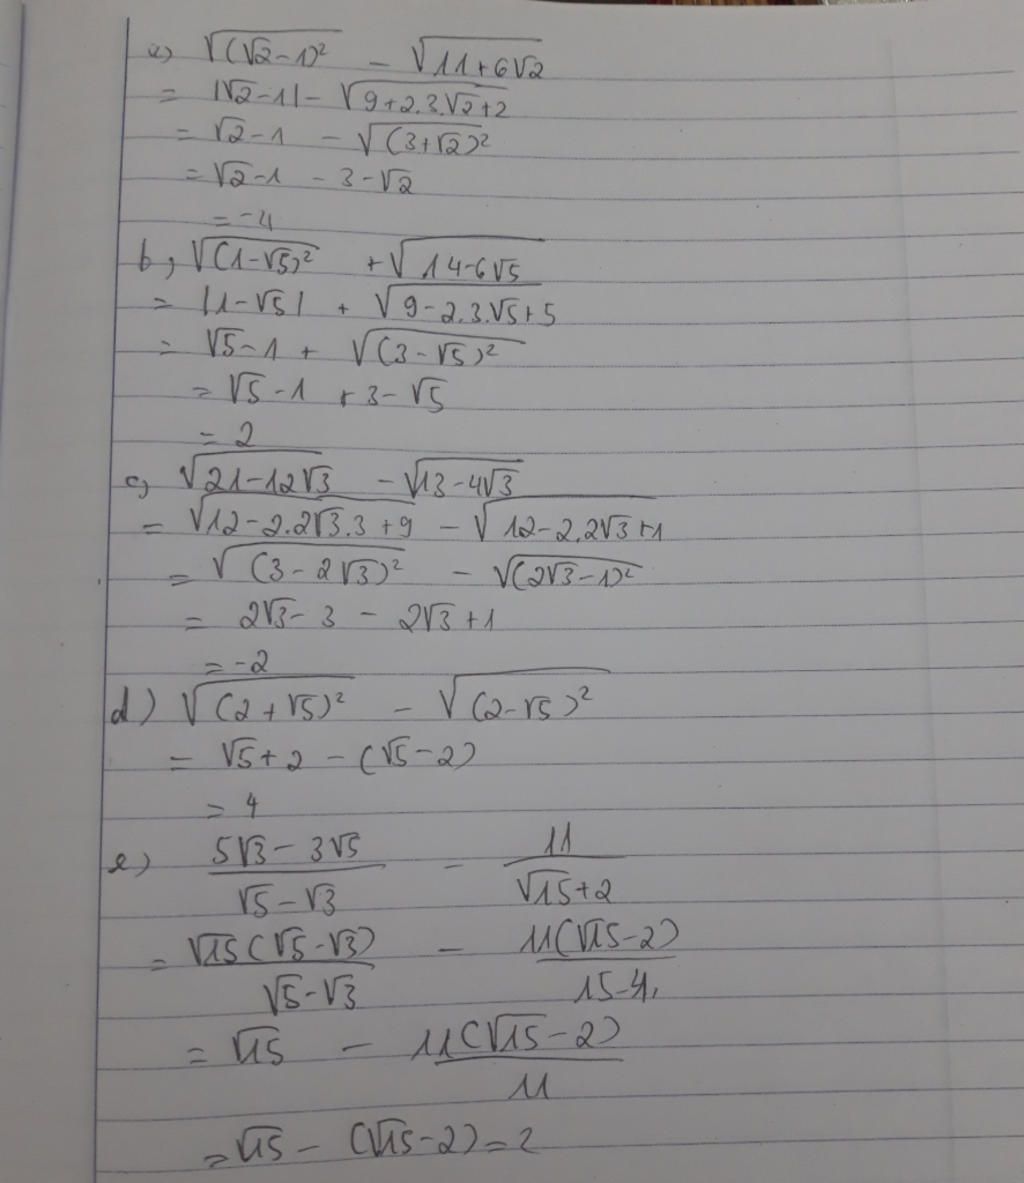 a) √(√2-1)² - √11+6√2
= |√2-1| - √9+2.3.√2+2
= √2-1 - √(3+√2)²
= √2-1 - 3-√2
= -4
b, √(1-√5)² + √14-6√5
= |1-√5| + √9-2.3.√5+5
= √5-1 + √(3-√5)²
= √5-1 + 3-√5
= 2
c, √21-12√3 - √13-4√3
= √12-2.2√3.3+9 - √12-2.2√3+1
= √(3-2√3)² - √(2√3-1)²
= 2√3-3 - 2√3+1
= -2
d) √(2+√5)² - √(2-√5)²
= √5+2 - (√5-2)
= 4
e) (5√3-3√5)/(√5-√3) - 11/(√15+2)
= √15(√5-√3)/(√5-√3) - 11(√15-2)/(15-4)
= √15 - 11(√15-2)/11
= √15 - (√15-2) = 2